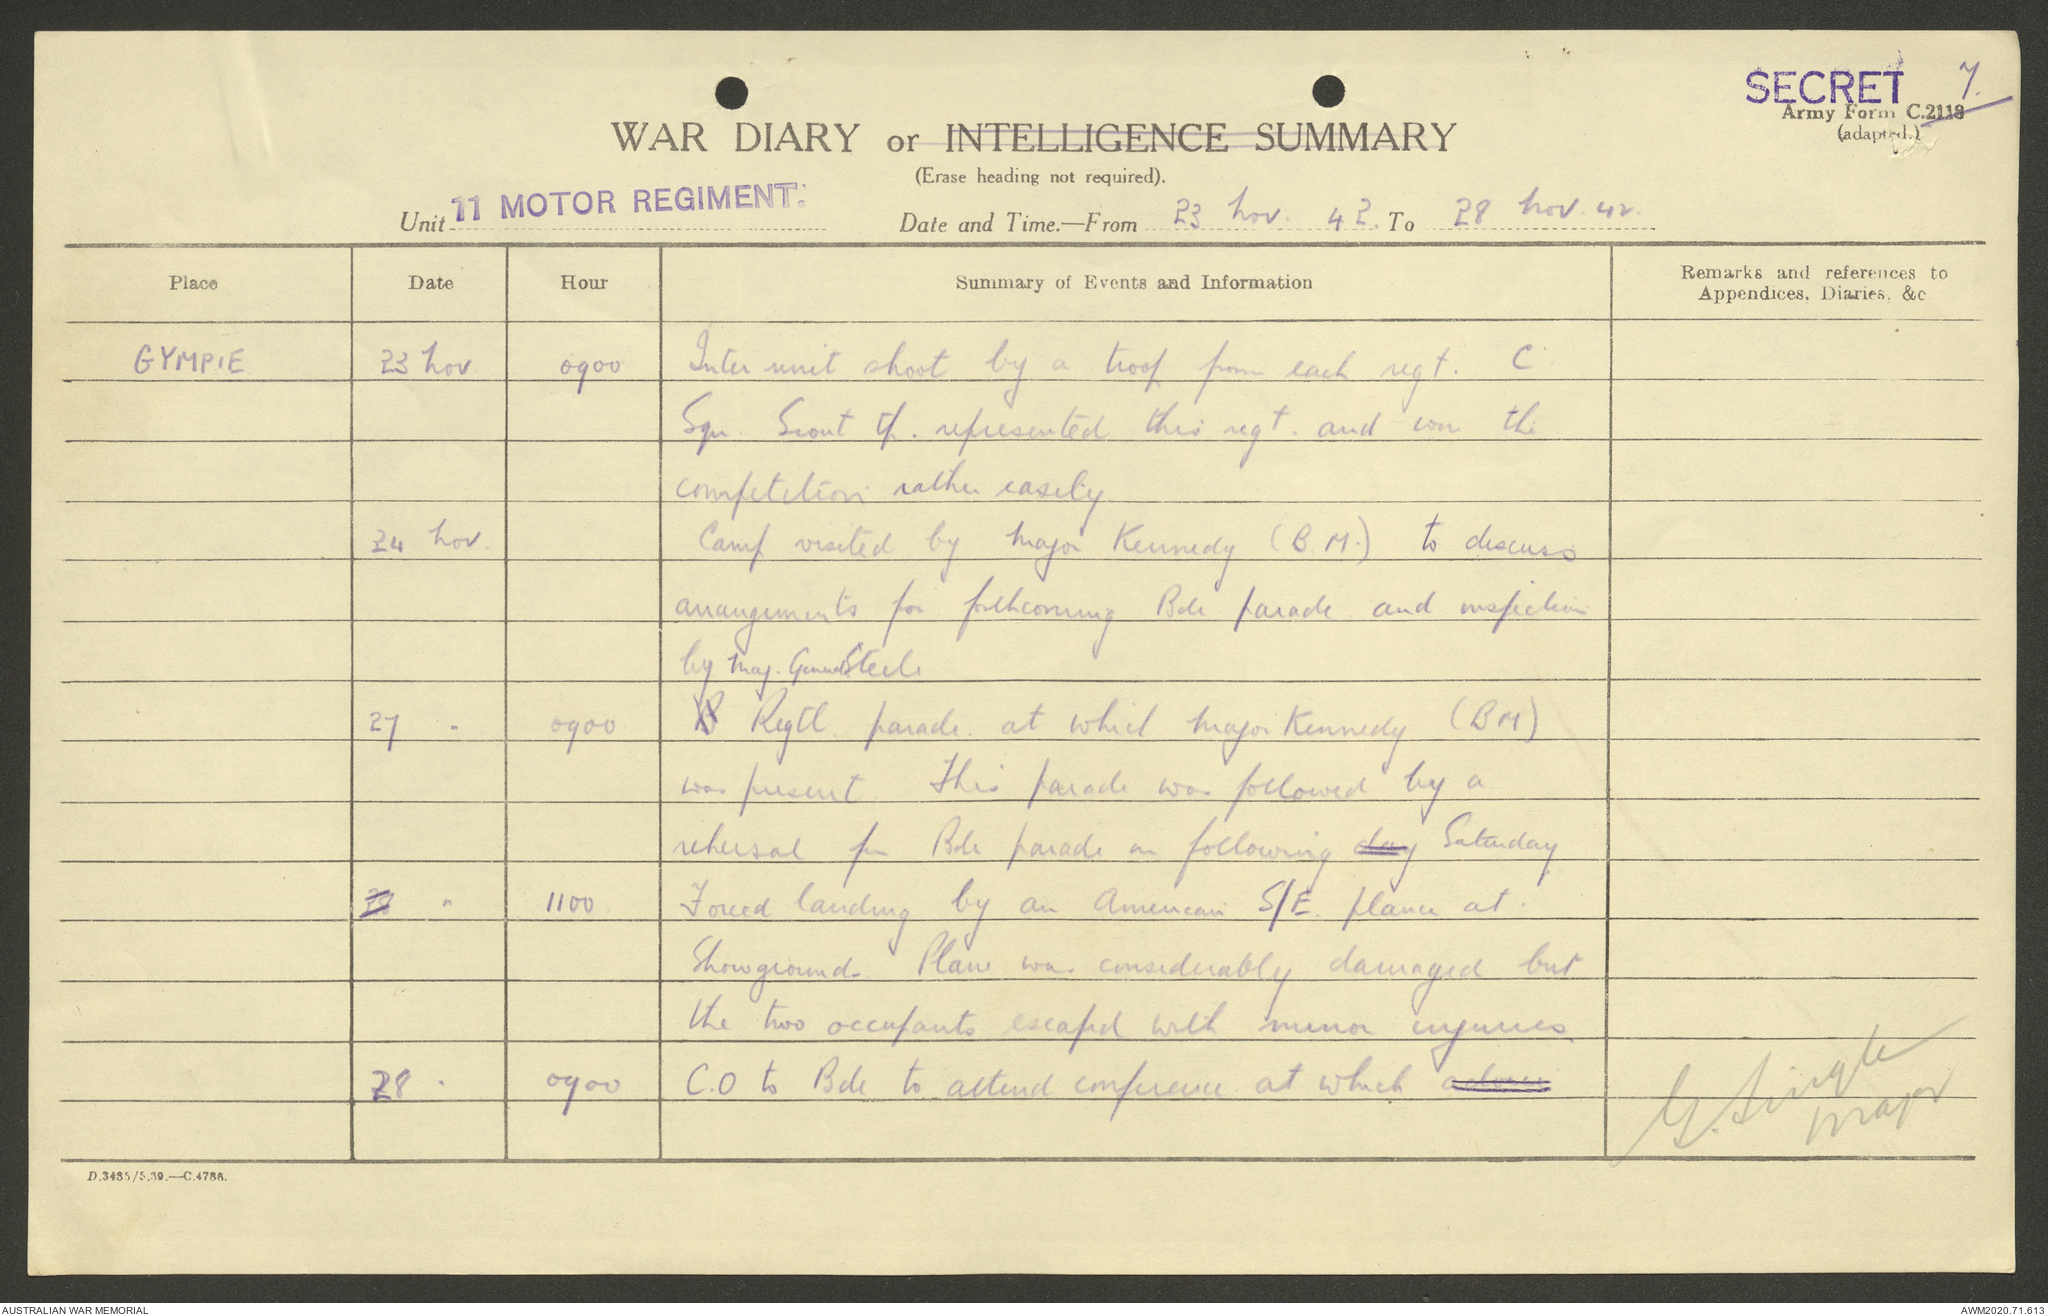 SECRET 7.
Army Form C.2118
(adapted.)
WAR DIARY or INTELLIGENCE SUMMARY
(Erase heading not required).
Unit 11 MOTOR REGIMENT. Date and Time.—From 23 Nov. 42. To 28 Nov. 42.
Place Date Hour Summary of Events and Information Remarks and references to
Appendices, Diaries, &c
GYMPIE 23 Nov. 0900 Inter unit shoot by a troop from each regt. C
Sqn. Scout Tp. represented this regt. and won the
competition rather easily.
24 Nov. Camp visited by Major Kennedy (B.M.) to discuss
arrangements for forthcoming Bde parade and inspection
by Maj. General Steele
27 " 0900 B Regtl. parade at which Major Kennedy (BM)
was present. This parade was followed by a
rehersal for Bde parade on following day Saturday.
" 1100. Forced landing by an American S/E. plane at
Showground. Plane was considerably damaged but
the two occupants escaped with minor injuries.
28 " 0900 C.O to Bde to attend conference at which
G. Single
Major
D.3485/5.39.—C.4788.
AUSTRALIAN WAR MEMORIAL AWM2020.71.613